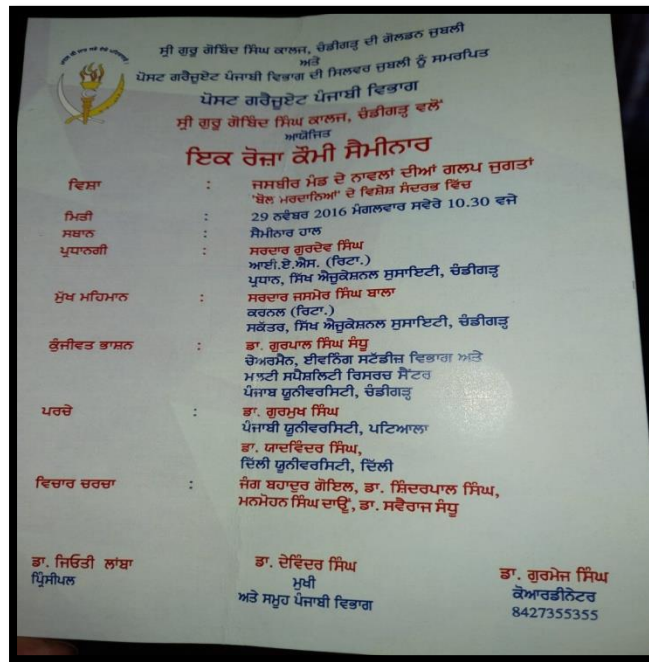 ਸ੍ਰੀ ਗੁਰੂ ਗੋਬਿੰਦ ਸਿੰਘ ਕਾਲਜ, ਚੰਡੀਗੜ੍ਹ ਦੀ ਗੋਲਡਨ ਜੁਬਲੀ
ਅਤੇ
ਪੋਸਟ ਗਰੈਜੂਏਟ ਪੰਜਾਬੀ ਵਿਭਾਗ ਦੀ ਸਿਲਵਰ ਜੁਬਲੀ ਨੂੰ ਸਮਰਪਿਤ
ਪੋਸਟ ਗਰੈਜੂਏਟ ਪੰਜਾਬੀ ਵਿਭਾਗ
ਸ੍ਰੀ ਗੁਰੂ ਗੋਬਿੰਦ ਸਿੰਘ ਕਾਲਜ, ਚੰਡੀਗੜ੍ਹ ਵਲੋਂ
ਆਯੋਜਿਤ
ਇਕ ਰੋਜ਼ਾ ਕੌਮੀ ਸੈਮੀਨਾਰ
ਵਿਸ਼ਾ : ਜਸਬੀਰ ਮੰਡ ਦੇ ਨਾਵਲਾਂ ਦੀਆਂ ਗਲਪ ਜੁਗਤਾਂ
'ਬੋਲ ਮਰਦਾਨਿਆ' ਦੇ ਵਿਸ਼ੇਸ਼ ਸੰਦਰਭ ਵਿੱਚ
ਮਿਤੀ : 29 ਨਵੰਬਰ 2016 ਮੰਗਲਵਾਰ ਸਵੇਰੇ 10.30 ਵਜੇ
ਸਥਾਨ : ਸੈਮੀਨਾਰ ਹਾਲ
ਪ੍ਰਧਾਨਗੀ : ਸਰਦਾਰ ਗੁਰਦੇਵ ਸਿੰਘ
ਆਈ.ਏ.ਐਸ. (ਰਿਟਾ.)
ਪ੍ਰਧਾਨ, ਸਿੱਖ ਐਜੂਕੇਸ਼ਨਲ ਸੁਸਾਇਟੀ, ਚੰਡੀਗੜ੍ਹ
ਮੁੱਖ ਮਹਿਮਾਨ : ਸਰਦਾਰ ਜਸਮੇਰ ਸਿੰਘ ਬਾਲਾ
ਕਰਨਲ (ਰਿਟਾ.)
ਸਕੱਤਰ, ਸਿੱਖ ਐਜੂਕੇਸ਼ਨਲ ਸੁਸਾਇਟੀ, ਚੰਡੀਗੜ੍ਹ
ਕੁੰਜੀਵਤ ਭਾਸ਼ਨ : ਡਾ. ਗੁਰਪਾਲ ਸਿੰਘ ਸੰਧੂ
ਚੇਅਰਮੈਨ, ਈਵਨਿੰਗ ਸਟੱਡੀਜ਼ ਵਿਭਾਗ ਅਤੇ
ਮਲਟੀ ਸਪੈਸ਼ਲਿਟੀ ਰਿਸਰਚ ਸੈਂਟਰ
ਪੰਜਾਬ ਯੂਨੀਵਰਸਿਟੀ, ਚੰਡੀਗੜ੍ਹ
ਪਰਚੇ : ਡਾ. ਗੁਰਮੁਖ ਸਿੰਘ
ਪੰਜਾਬੀ ਯੂਨੀਵਰਸਿਟੀ, ਪਟਿਆਲਾ
ਡਾ. ਯਾਦਵਿੰਦਰ ਸਿੰਘ,
ਦਿੱਲੀ ਯੂਨੀਵਰਸਿਟੀ, ਦਿੱਲੀ
ਵਿਚਾਰ ਚਰਚਾ : ਜੰਗ ਬਹਾਦੁਰ ਗੋਇਲ, ਡਾ. ਸ਼ਿੰਦਰਪਾਲ ਸਿੰਘ,
ਮਨਮੋਹਨ ਸਿੰਘ ਦਾਊਂ, ਡਾ. ਸਵੈਰਾਜ ਸੰਧੂ
ਡਾ. ਜਿਓਤੀ ਲਾਂਬਾ
ਪ੍ਰਿੰਸੀਪਲ
ਡਾ. ਦੇਵਿੰਦਰ ਸਿੰਘ
ਮੁਖੀ
ਅਤੇ ਸਮੂਹ ਪੰਜਾਬੀ ਵਿਭਾਗ
ਡਾ. ਗੁਰਮੇਜ ਸਿੰਘ
ਕੋਆਰਡੀਨੇਟਰ
8427355355